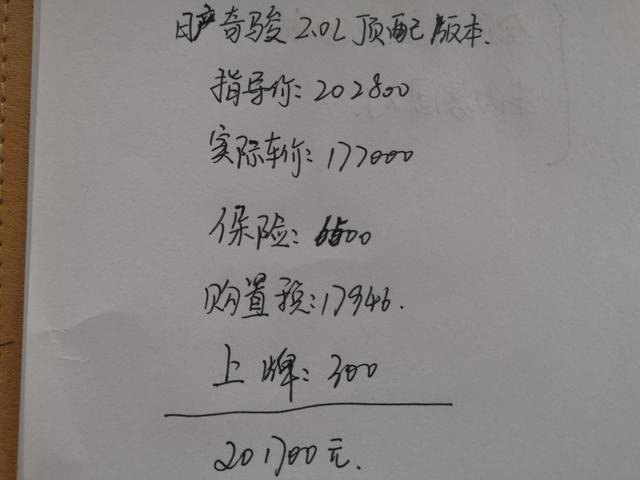 日产奇骏2.0L顶配版本.
指导价:202800
实际车价:177000
保险:6600
购置税:17946.
上牌:300
201700元.